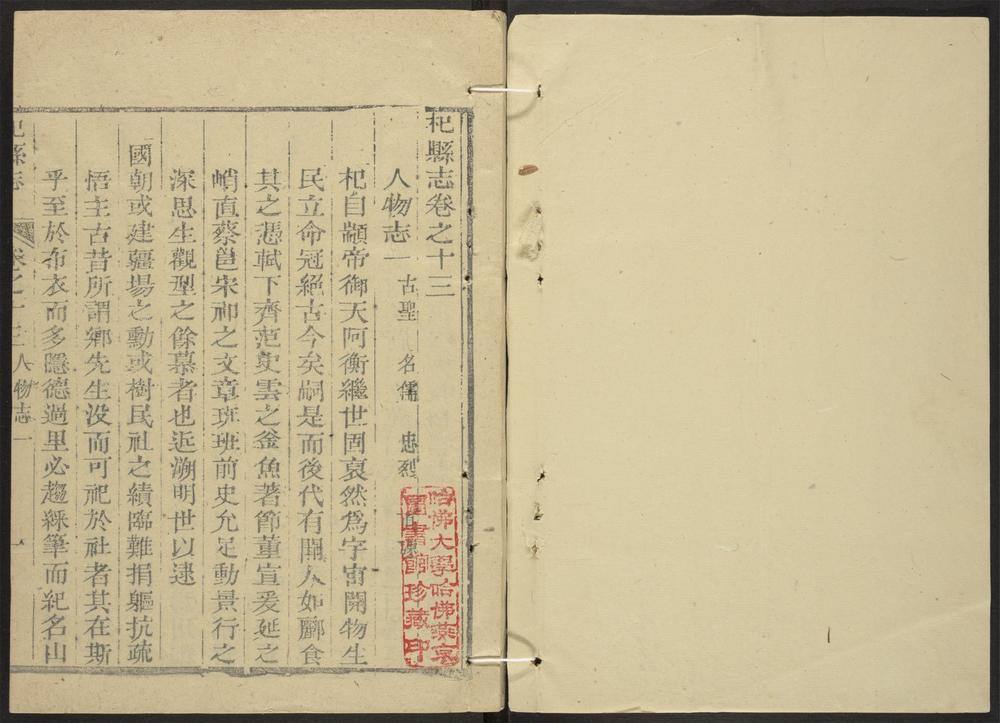 杞縣志卷之十三
人物志一 古聖 名儒 忠烈
杞自顓帝御天阿衡繼世固裒然爲宇宙開物生
民立命冠絕古今矣嗣是而後代有聞人如酈食
其之憑軾下齊范史雲之釜魚著節董宣爰延之
峭直蔡邕宋祁之文章班班前史允足動景行之
深思生觀型之餘慕者也近溯明世以逮
國朝或建疆場之勳或樹民社之績臨難捐軀抗疏
悟主古昔所謂鄉先生没而可祀於社者其在斯
乎至於布衣而多隱德過里必趨綵筆而紀名山
杞縣志 卷之十三 人物志一 一
哈佛大學哈佛燕京
圖書館珍藏印